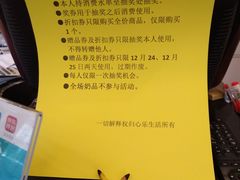 ●本人持消费水单至抽奖处抽奖。
●奖券用于抽奖之后消费使用。
●折扣券只限购买全价商品，仅限购买
1个。
●赠品券及折扣券只限抽奖本人使用，
不得转赠他人。
●赠品券及折扣券只限12月24、12月
25日两天使用。过期作废。
●每人仅限一次抽奖机会。
●全场奶品不参与活动。
一切解释权归心乐生活所有